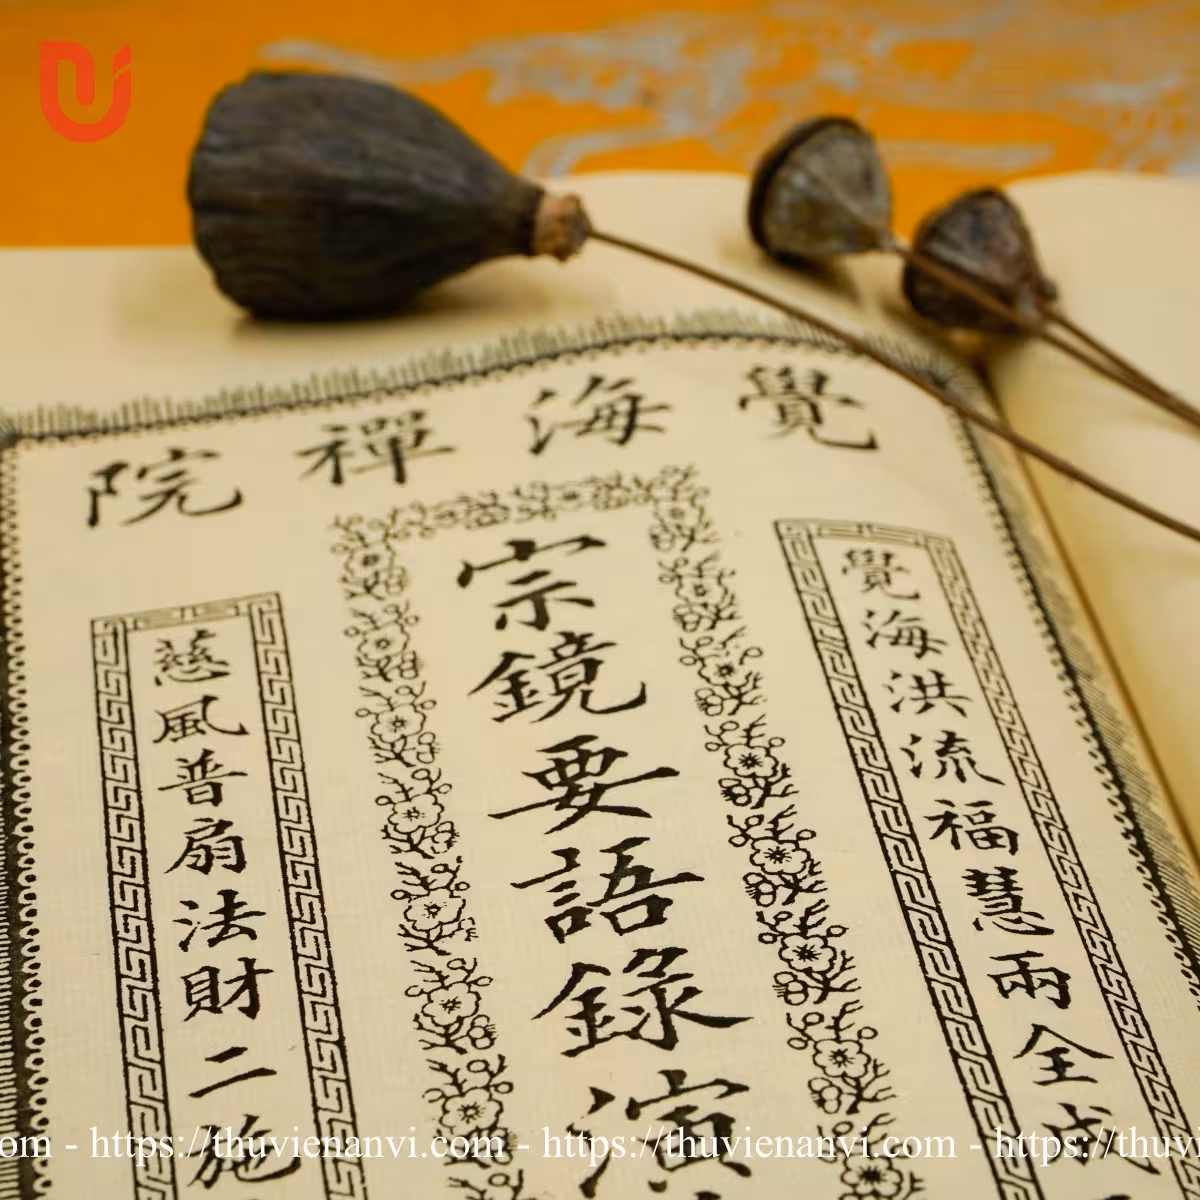 覺海禪院
覺海洪流福慧兩全成
宗鏡要語錄演
慈風普扇法財二施
om - https://thuvienanvi.com - https://thuvienanvi.com - https://thuvi